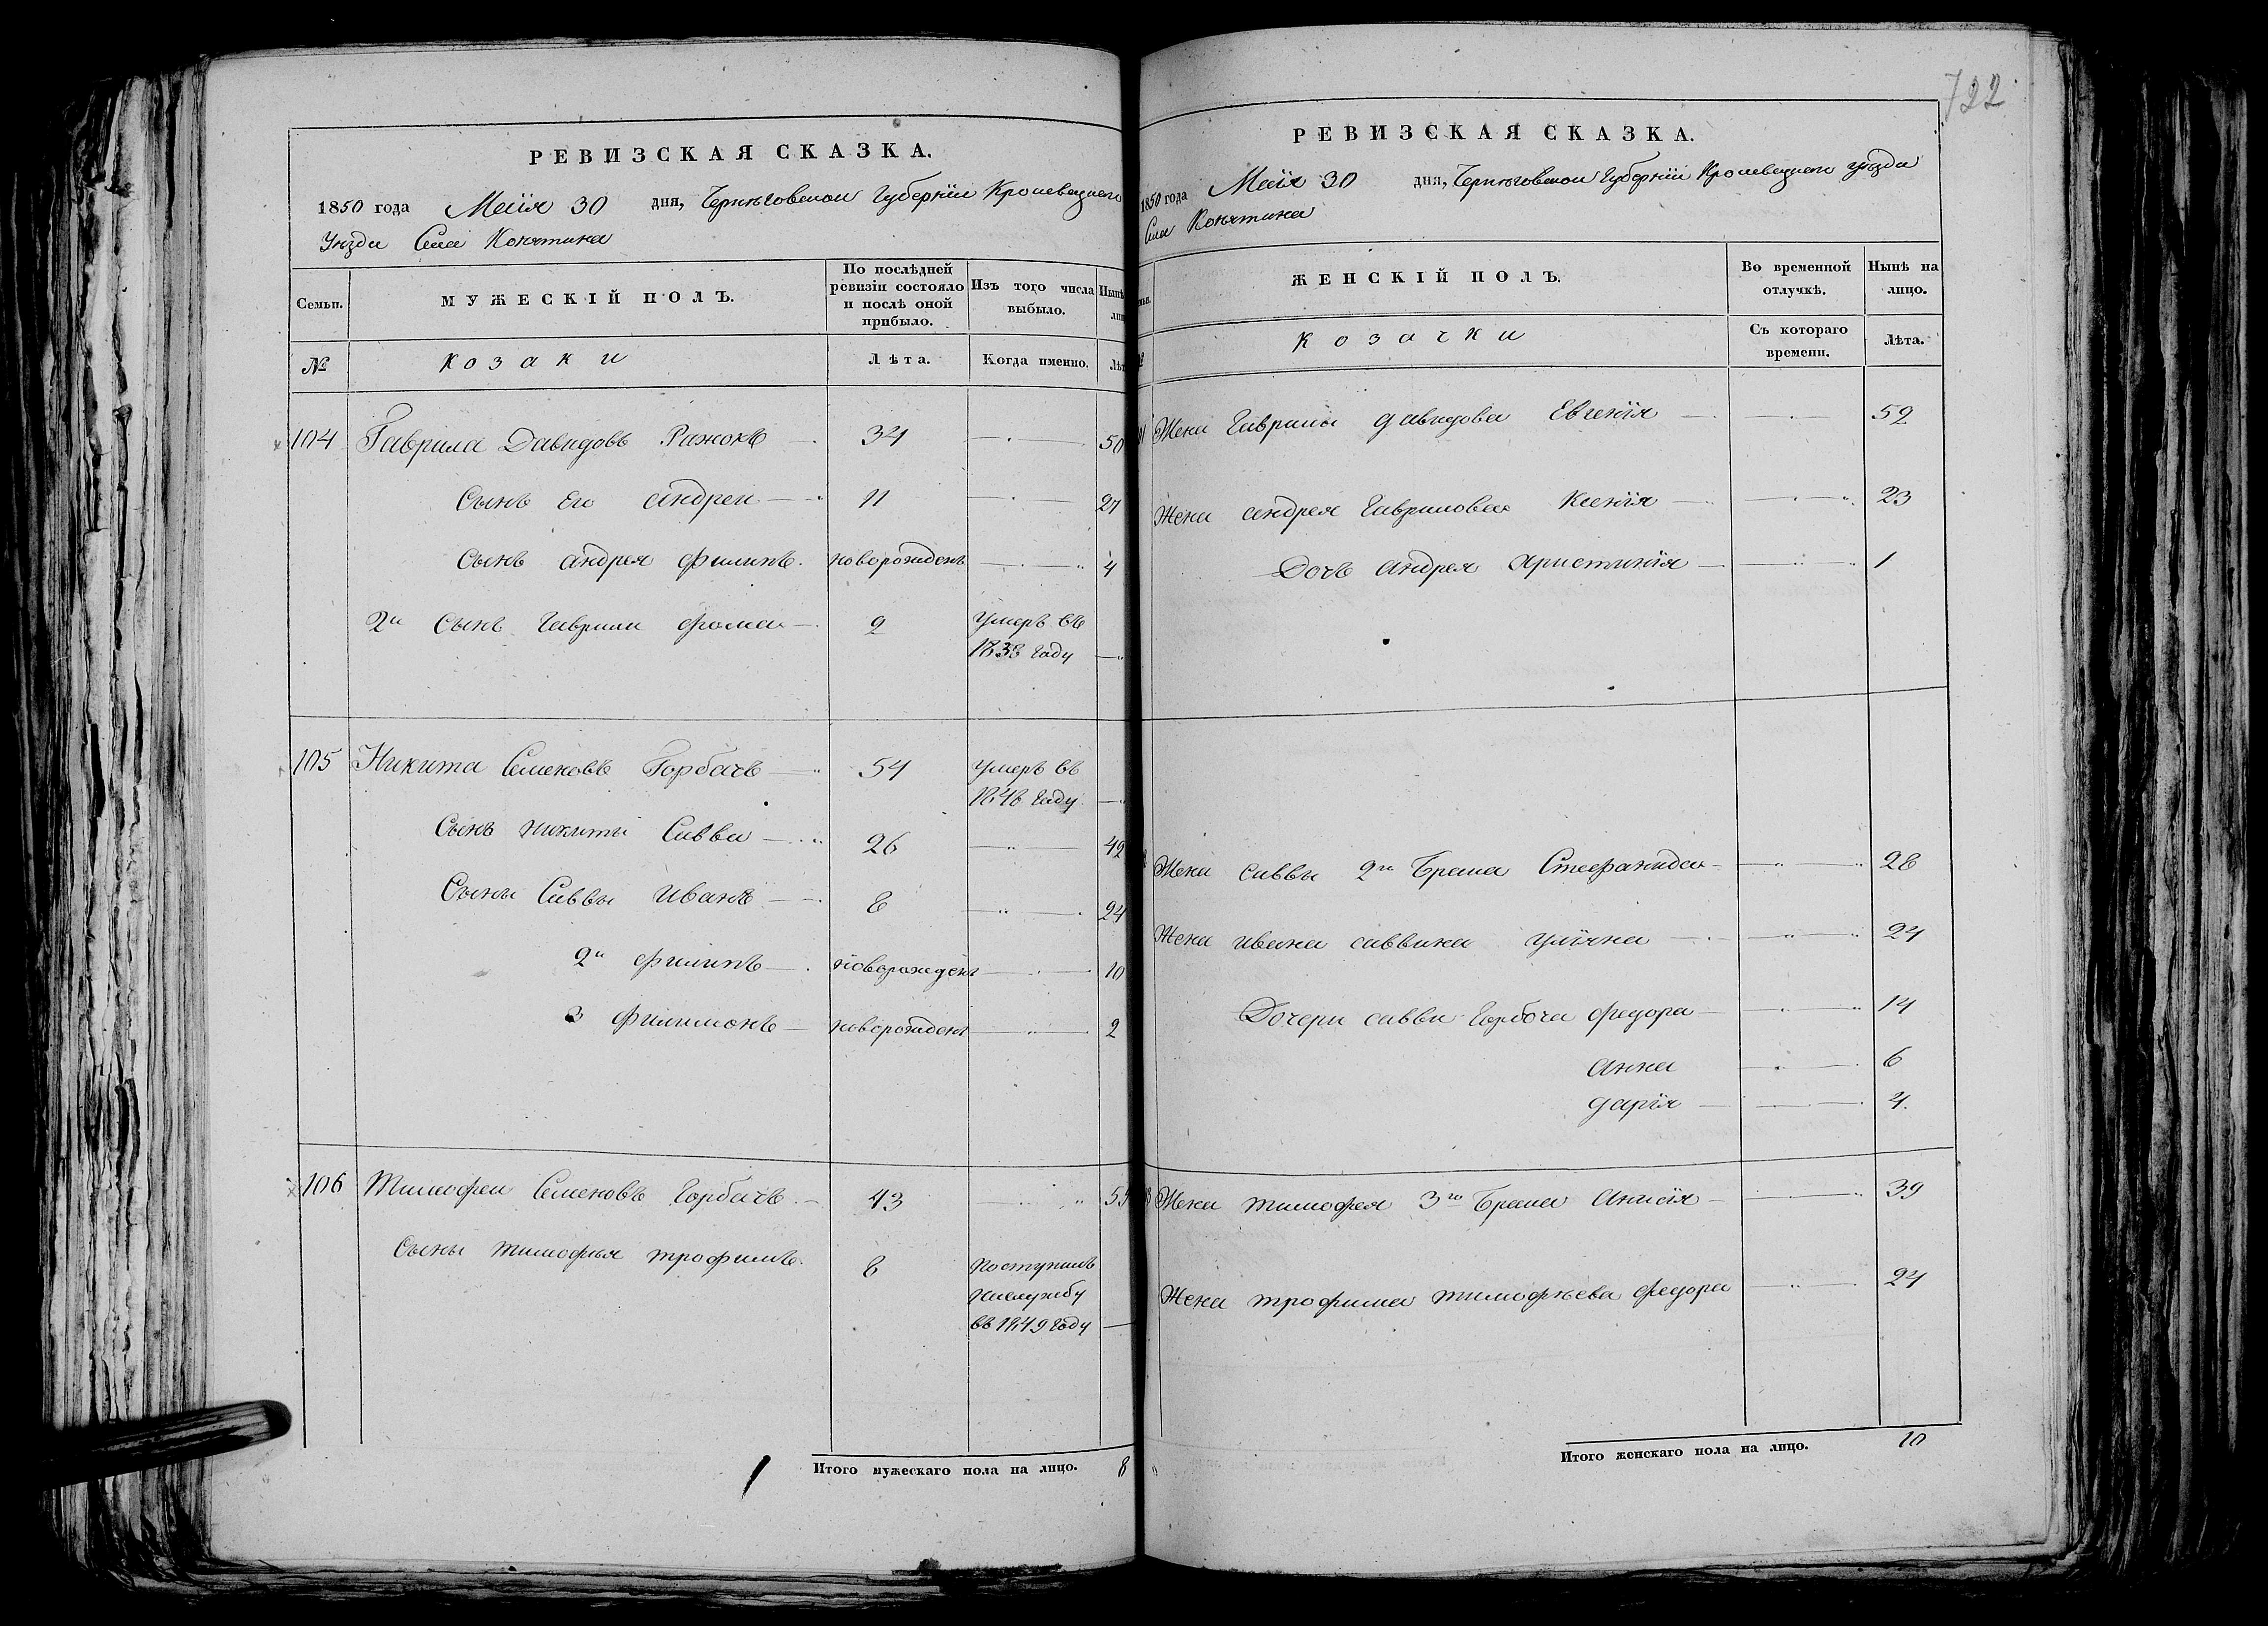 722
РЕВИЗСКАЯ СКАЗКА.
1850 года Маія 30 дня, Черниговской Губерніи Кролевецкаго
Уѣзда Села Конятина
Семьи. МУЖЕСКІЙ ПОЛЪ. По послѣдней ревизіи состояло и послѣ оной прибыло. Изъ того числа выбыло. Нынѣ
№ Козаки Лѣта. Когда именно.
104 Гаврила Давидовъ Рижокъ 34 50
Сынъ Его Андрей 11 27
Сынъ Андрея Филипъ новорожденъ 4
2й Сынъ Гаврилы Фома 2 Умеръ въ
1838 году
105 Никита Семеновъ Горбачъ 54 Умеръ въ
1848 году
Сынъ Никиты Савва 26 42
Сыны Саввы Иванъ 8 24
2й Филипъ новорожденъ 10
3 Филимонъ новорожденъ 2
106 Тимофей Семеновъ Горбачъ 43 59
Сыны Тимофея Трофимъ 8 Поступилъ
на службу
въ 1849 году
Итого мужескаго пола на лицо. 8
РЕВИЗСКАЯ СКАЗКА.
1850 года Маія 30 дня, Черниговской Губерніи Кролевецкаго уѣзда
Села Конятина
ЖЕНСКІЙ ПОЛЪ. Во временной отлучкѣ. Нынѣ на лицо.
Козачки Съ котораго времени. Лѣта.
Жена Гаврилы Давидова Евгенія 52
Жена Андрея Гаврилова Ксенія 23
Дочь Андрея Христинія 1
Жена Саввы 2го Брака Стефанида 28
Жена Ивана Саввина Уліяна 24
Дочери Саввы Горбача Федора 14
Анна 6
Дарія 4.
Жена Тимофея 3го Брака 39
Жена Трофима Тимофѣева Федора 24
Итого женскаго пола на лицо. 10